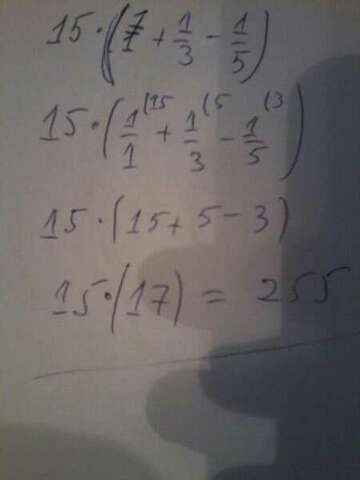 15·(1/1 + 1/3 - 1/5)
15·(1/1 (15 + 1/3 (5 - 1/5 (3)
15·(15+ 5- 3)
15·(17) = 255